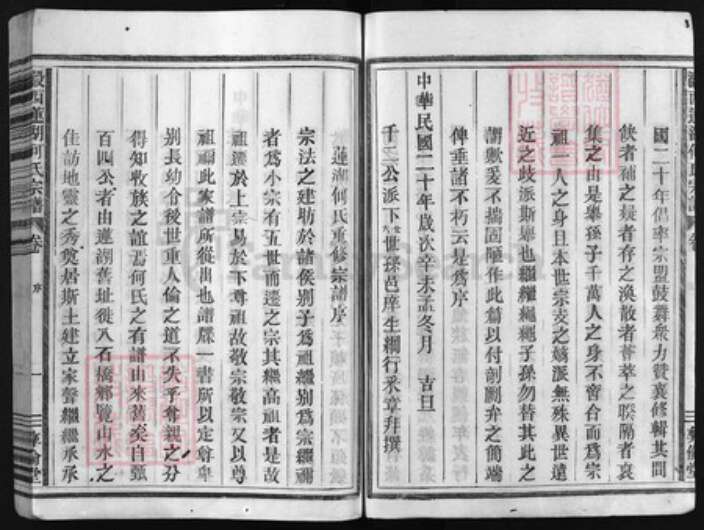 國二十年倡率宗盟鼓舞衆力贊襄修輯其間
缺者補之疑者存之渙散者薈萃之暌隔者裒
集之由是舉孫子千萬人之身不啻合而爲宗
祖一人之身且本世宗支之嫡派無殊異世遠
近之歧派斯舉也繼繼繩繩子孫勿替其此之
謂歟爰不揣固陋作此篇以付剞劂弁之簡端
俾垂諸不朽云是爲序
中華民國二十年歲次辛未孟冬月 吉旦
千二公派下 世孫邑庠生綱行承章拜撰
蓮湖何氏重修宗譜序
宗法之建昉於諸侯别子爲祖繼别爲宗繼禰
者爲小宗有五世而遷之宗其繼高祖者是故
祖遷於上宗易於下尊祖故敬宗敬宗又以尊
祖禰此家譜所從出也譜牒一書所以定尊卑
别長幼令後世重人倫之道不失乎尊親之分
得知收族之誼焉何氏之有譜由來舊矣自强
百四公者由蓮湖舊址徙入石橋鄉覽山水之
佳訪地靈之秀奠居斯土建立家聲繼繼承承
西蓮湖何氏宗譜
卷
序
一
彝倫堂